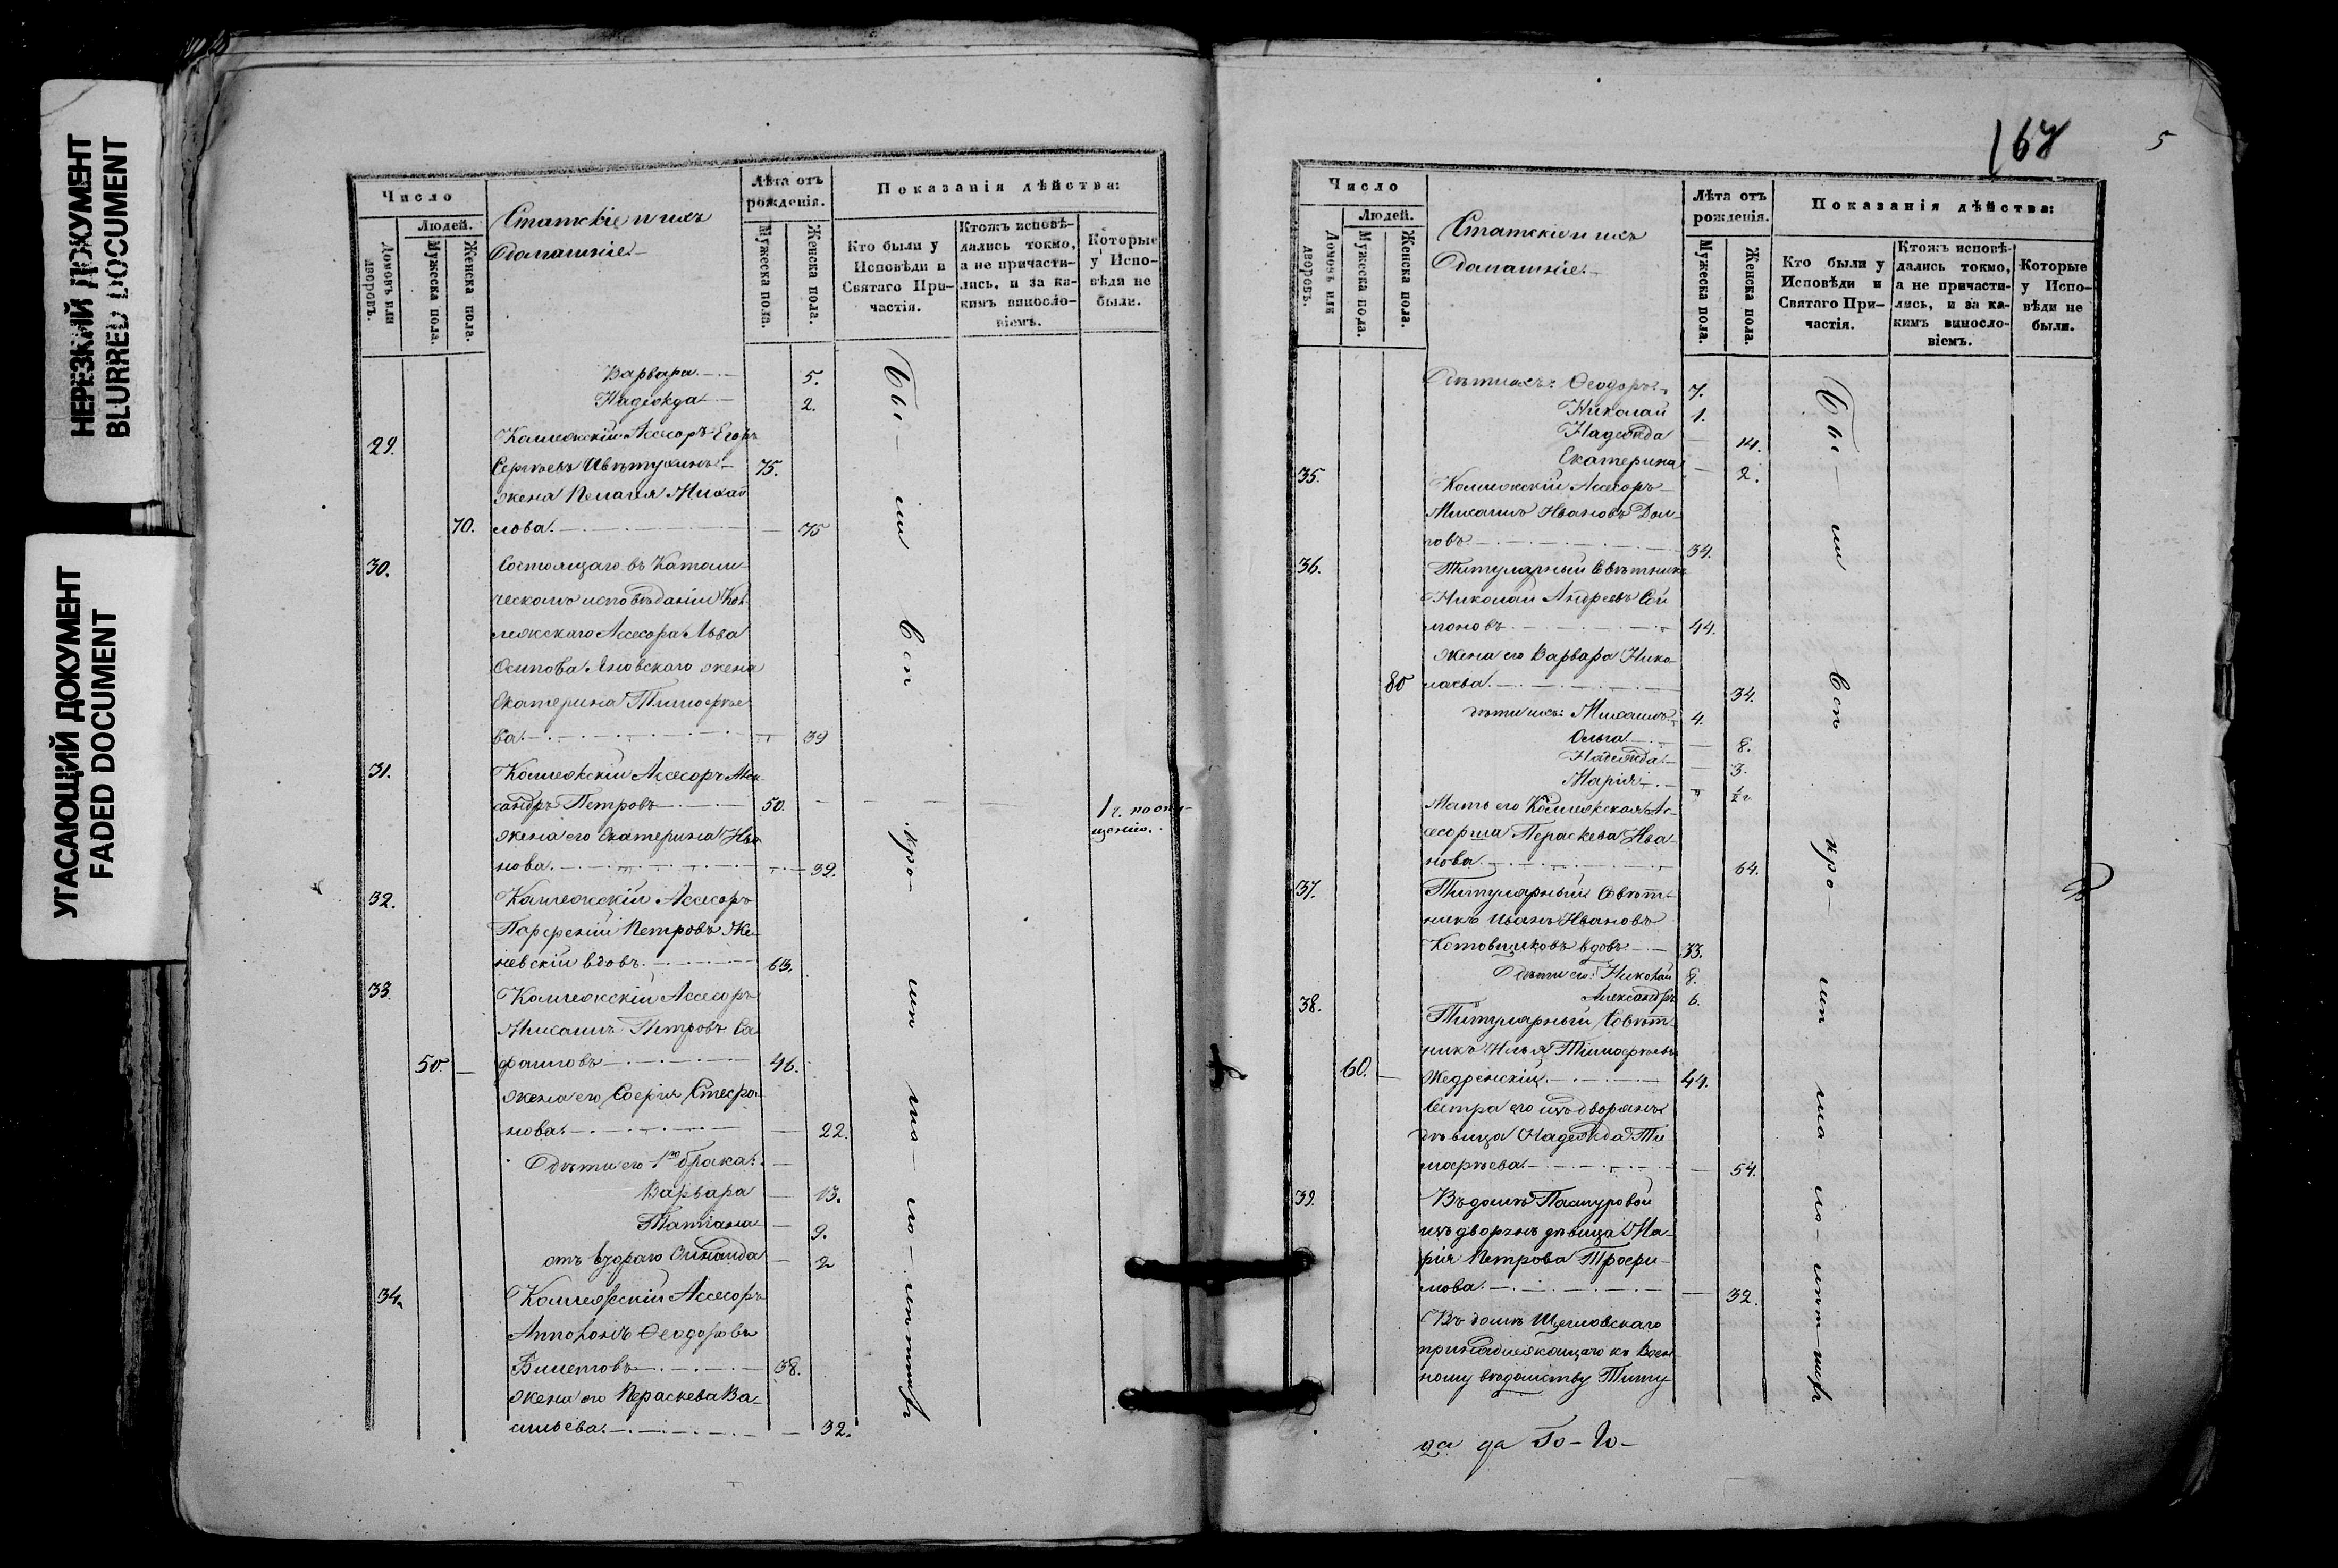 НЕРЕЗКИЙ ДОКУМЕНТ
BLURRED DOCUMENT
УГАСАЮЩИЙ ДОКУМЕНТ
FADED DOCUMENT
Число
Людей.
Домовъ или дворовъ.
Мужеска пола.
Женска пола.
Статскіе и ихъ
домашніе
Лѣта отъ рожденія.
Мужеска пола.
Женска пола.
Показанія дѣйства:
Кто были у Исповѣди и Святаго Причастія.
Ктожъ исповѣдались токмо, а не причастились, и за какимъ винословіемъ.
Которые у Исповѣди не были.
Варвара 5.
Надежда 2.
29. Коллежскій Асесоръ Егоръ
Сергѣевъ 75.
жена Пелагія Михай
70. лова 75
30. Состоящаго въ Католи
ческомъ исповѣданіи Кол
лежскаго Асесора Льва
Осипова Яновскаго жена
Екатерина Тимофѣе
ва 39
31. Коллежскій Асесоръ Алек
сандръ Петровъ 50. 1 г. по опу
щенію.
жена его Екатерина Ива
нова 39.
32. Коллежскій Асесоръ
Парфеній Петровъ
невскій вдовъ 63.
33. Коллежскій Асесоръ
Михаилъ Петровъ Са
50 фаиловъ 46.
жена его Софія Стефа
нова 22.
дѣти его 1го брака
Варвара 13.
Татіана 9.
отъ втораго 2
34. Коллежскій Асесоръ
Аполонъ Ѳеодоровъ
Билетовъ 38.
жена его Параскева Ва
сильева 32.
Бы-ли всѣ кро-
168
5
Число
Людей.
Домовъ или дворовъ.
Мужеска пола.
Женска пола.
Статскіе и ихъ
домашніе
Лѣта отъ рожденія.
Мужеска пола.
Женска пола.
Показанія дѣйства:
Кто были у Исповѣди и Святаго Причастія.
Ктожъ исповѣдались токмо, а не причастились, и за какимъ винословіемъ.
Которые у Исповѣди не были.
дѣти ихъ: Ѳеодоръ 7.
Николай 1.
Надежда 14.
Екатерина 2.
35. Коллежскій Асесоръ
Михаилъ Ивановъ Дол
говъ 34.
36. Титулярный Совѣтникъ
Николай Андреевъ Сей
моновъ 44.
жена его Варвара Нико
80 лаева 34.
дѣти ихъ: Михаилъ 4.
Ольга 8.
Надежда 3.
Марія ½ г.
Мать его Коллежская Ас
сесорша Параскева Ива
нова 64.
37. Титулярный Совѣт
никъ Иванъ Ивановъ
Котовщиковъ вдовъ 33.
дѣти его: Николай 8.
Александръ 6.
38. Титулярный Совѣт
никъ Илья Тимофѣевъ
60. Жедринскій 44.
Сестра его изъ дворянъ
дѣвица Надежда Ти
мофѣева 54.
39. Въ домѣ Пашуровой
изъ дворянъ дѣвица Ма
рія Петрова Трофи
мова 32.
Въ домѣ Щегловскаго
принадлежащаго къ Воен
ному вѣдомству Титу
Бы-ли всѣ кро-